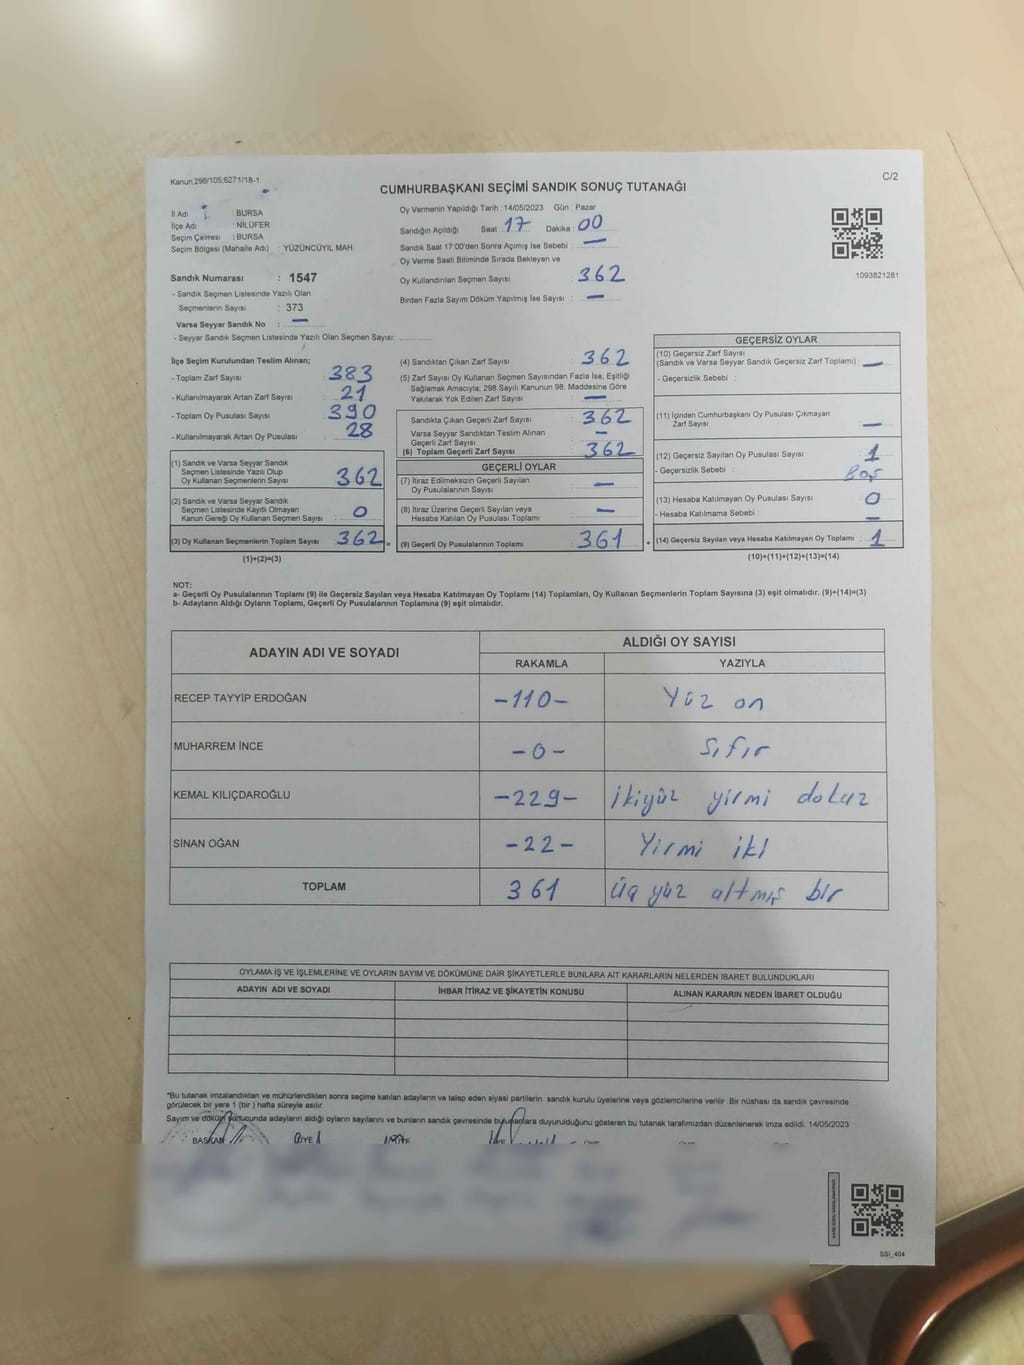 Kanun:298/105;6271/18-1
C/2
CUMHURBAŞKANI SEÇİMİ SANDIK SONUÇ TUTANAĞI
İl Adı : BURSA
İlçe Adı : NİLÜFER
Seçim Çevresi : BURSA
Seçim Bölgesi (Mahalle Adı) : YÜZÜNCÜYIL MAH.
Sandık Numarası : 1547
- Sandık Seçmen Listesinde Yazılı Olan
Seçmenlerin Sayısı : 373
Varsa Seyyar Sandık No : —
- Seyyar Sandık Seçmen Listesinde Yazılı Olan Seçmen Sayısı:
Oy Vermenin Yapıldığı Tarih : 14/05/2023 Gün : Pazar
Sandığın Açıldığı Saat : 17 Dakika : 00
Sandık Saat 17:00'den Sonra Açımış İse Sebebi : —
Oy Verme Saati Bitiminde Sırada Bekleyen ve
Oy Kullandırılan Seçmen Sayısı : 362
Birden Fazla Sayım Döküm Yapılmış İse Sayısı : —
1093821281
İlçe Seçim Kurulundan Teslim Alınan;
- Toplam Zarf Sayısı : 383
- Kullanılmayarak Artan Zarf Sayısı : 21
- Toplam Oy Pusulası Sayısı : 390
- Kullanılmayarak Artan Oy Pusulası : 28
(1) Sandık ve Varsa Seyyar Sandık
Seçmen Listesinde Yazılı Olup
Oy Kullanan Seçmenlerin Sayısı : 362
(2) Sandık ve Varsa Seyyar Sandık
Seçmen Listesinde Kayıtlı Olmayan
Kanun Gereği Oy Kullanan Seçmen Sayısı : 0
(3) Oy Kullanan Seçmenlerin Toplam Sayısı : 362 =
(1)+(2)=(3)
(4) Sandıktan Çıkan Zarf Sayısı : 362
(5) Zarf Sayısı Oy Kullanan Seçmen Sayısından Fazla İse, Eşitliği
Sağlamak Amacıyla; 298 Sayılı Kanunun 98. Maddesine Göre
Yakılarak Yok Edilen Zarf Sayısı : —
Sandıkta Çıkan Geçerli Zarf Sayısı : 362
Varsa Seyyar Sandıktan Teslim Alınan
Geçerli Zarf Sayısı : —
(6) Toplam Geçerli Zarf Sayısı : 362
GEÇERLİ OYLAR
(7) İtiraz Edilmeksizin Geçerli Sayılan
Oy Pusulalarının Sayısı : —
(8) İtiraz Üzerine Geçerli Sayılan veya
Hesaba Katılan Oy Pusulası Toplamı : —
(9) Geçerli Oy Pusulalarının Toplamı : 361 +
GEÇERSİZ OYLAR
(10) Geçersiz Zarf Sayısı
(Sandık ve Varsa Seyyar Sandık Geçersiz Zarf Toplamı) : —
- Geçersizlik Sebebi :
(11) İçinden Cumhurbaşkanı Oy Pusulası Çıkmayan
Zarf Sayısı : —
(12) Geçersiz Sayılan Oy Pusulası Sayısı : 1
- Geçersizlik Sebebi : Boş
(13) Hesaba Katılmayan Oy Pusulası Sayısı : 0
- Hesaba Katılmama Sebebi : —
(14) Geçersiz Sayılan veya Hesaba Katılmayan Oy Toplamı : 1
(10)+(11)+(12)+(13)=(14)
NOT:
a- Geçerli Oy Pusulalarının Toplamı (9) ile Geçersiz Sayılan veya Hesaba Katılmayan Oy Toplamı (14) Toplamları, Oy Kullanan Seçmenlerin Toplam Sayısına (3) eşit olmalıdır. (9)+(14)=(3)
b- Adayların Aldığı Oyların Toplamı, Geçerli Oy Pusulalarının Toplamına (9) eşit olmalıdır.
ADAYIN ADI VE SOYADI ALDIĞI OY SAYISI
RAKAMLA YAZIYLA
RECEP TAYYİP ERDOĞAN -110- Yüz on
MUHARREM İNCE -0- sıfır
KEMAL KILIÇDAROĞLU -229- ikiyüz yirmi dokuz
SİNAN OĞAN -22- Yirmi iki
TOPLAM 361 üç yüz altmış bir
OYLAMA İŞ VE İŞLEMLERİNE VE OYLARIN SAYIM VE DÖKÜMÜNE DAİR ŞİKAYETLERLE BUNLARA AİT KARARLARIN NELERDEN İBARET BULUNDUKLARI
ADAYIN ADI VE SOYADI İHBAR İTİRAZ VE ŞİKAYETİN KONUSU ALINAN KARARIN NEDEN İBARET OLDUĞU
*Bu tutanak imzalandıktan ve mühürlendikten sonra seçime katılan adayların ve talep eden siyasi partilerin sandık kurulu üyelerine veya gözlemcilerine verilir. Bir nüshası da sandık çevresinde
görülecek bir yere 1 (bir) hafta süreyle asılır.
Sayım ve döküm sonucunda adayların aldığı oyların sayılarını ve bunların sandık çevresinde bulunanlara duyurulduğunu gösteren bu tutanak tarafımızdan düzenlenerek imza edildi. 14/05/2023
BAŞKAN ÜYE
SSI_404